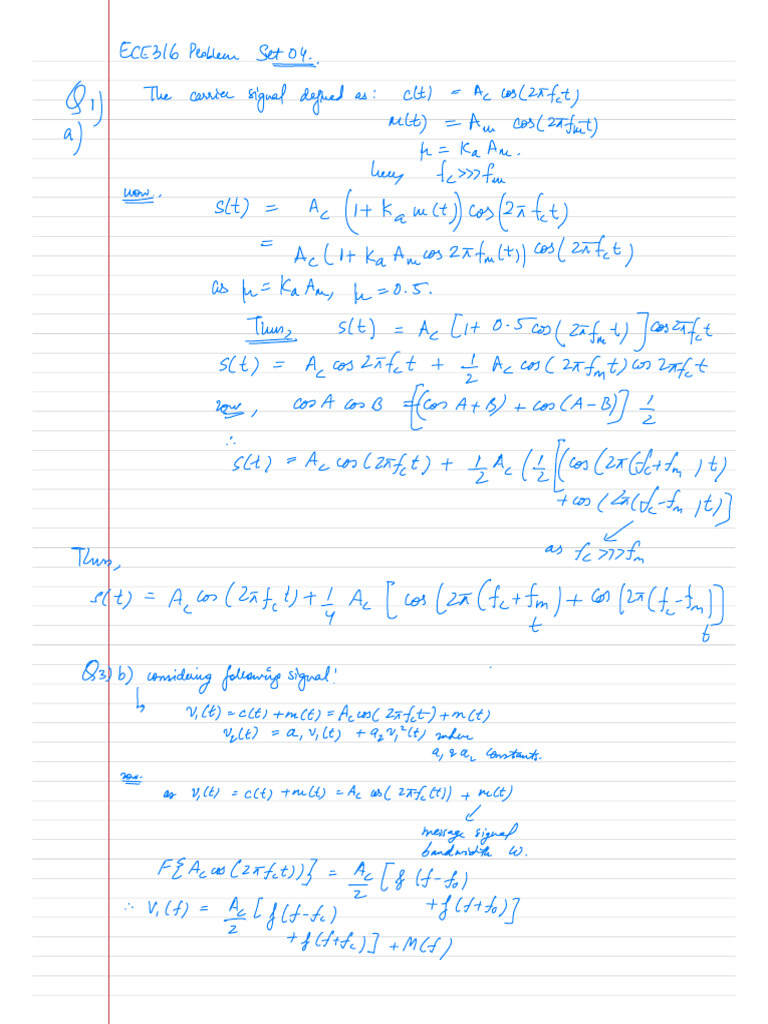 ECE316 Problem Set 04.
Q1) The carrier signal defined as: c(t) = A_c cos(2πf_c t)
a) m(t) = A_m cos(2πf_m t)
μ = K_a A_m.
here, f_c >>> f_m
now.
s(t) = A_c (1 + K_a m(t)) cos(2πf_c t)
= A_c (1 + K_a A_m cos 2πf_m(t)) cos(2πf_c t)
as μ = K_a A_m, μ = 0.5.
Thus, s(t) = A_c [1 + 0.5 cos(2πf_m t)] cos 2πf_c t
s(t) = A_c cos 2πf_c t + 1/2 A_c cos(2πf_m t) cos 2πf_c t
now, cos A cos B = [(cos A+B) + cos(A-B)] 1/2
∴
s(t) = A_c cos(2πf_c t) + 1/2 A_c (1/2 [(cos(2π(f_c+f_m)t)
+ cos(2π(f_c-f_m)t)]
as f_c >>> f_m
Thus,
s(t) = A_c cos(2πf_c t) + 1/4 A_c [cos(2π(f_c+f_m) + cos(2π(f_c-f_m)]
t t
Q3) b) considering following signal!
↳ v₁(t) = c(t) + m(t) = A_c cos(2πf_c t) + m(t)
v₂(t) = a₁ v₁(t) + a₂ v₁²(t) where
a₁ & a₂ constants.
now.
as v₁(t) = c(t) + m(t) = A_c cos(2πf_c(t)) + m(t)
message signal
bandwidth W.
F{A_c cos(2πf_c t))} = A_c/2 [f(f-f₀)
+ f(f+f₀)]
∴ V₁(f) = A_c/2 [f(f-f_c)
+ f(f+f_c)] + M(f)